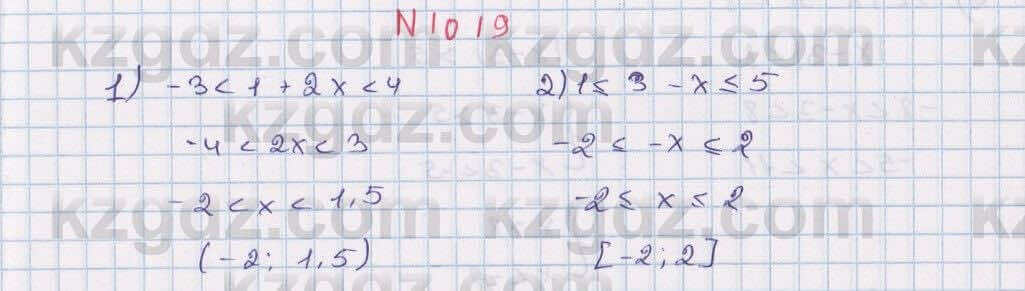 N1019
1) -3 < 1 + 2x < 4
-4 < 2x < 3
-2 < x < 1,5
(-2; 1,5)
2) 1 ≤ 3 - x ≤ 5
-2 ≤ -x ≤ 2
-2 ≤ x ≤ 2
[-2; 2]
kzgdz.com
kzgdz.com
kzgdz.com
kzgdz.com
kzgdz.com
kzgdz.com